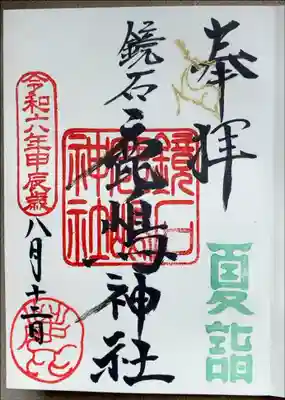 奉拝
夏詣
鏡石
鹿嶋神社
鏡石鹿嶋神社
令和六年甲辰歳
八月十二日